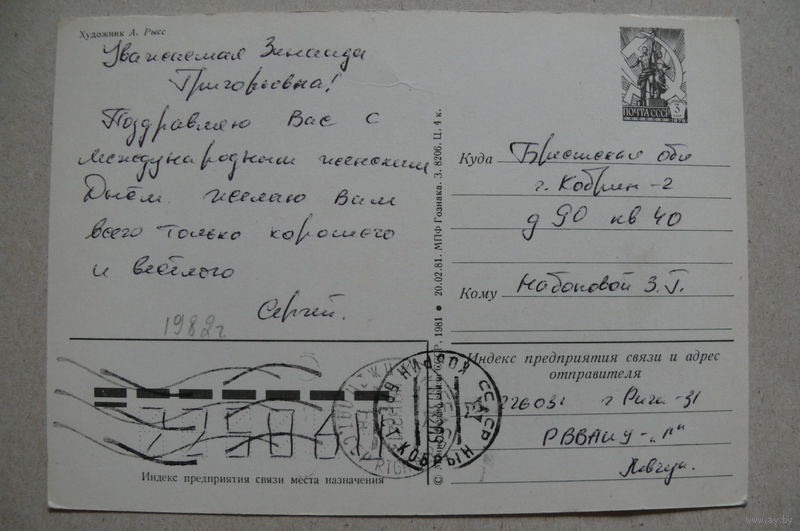 Художник А. Рысс
Уважаемая Зинаида
Григорьевна!
Поздравляю Вас с
международным женским
Днём. желаю Вам
всего только хорошего
и весёлого
Сергей.
1982г
ПОЧТА СССР 3
Куда Брестская обл
г. Кобрин-2
д 90 кв 40
Кому Набоковой З.Г.
Индекс предприятия связи и адрес
отправителя
226031 г Рига-31
РВВАИУ-„Л"
20.02.81. МПФ Гознака. З. 8206. Ц. 4 к.
СССР. 1981
КОБРИН
СССР
КОБРЫН
Индекс предприятия связи места назначения
www.ay.by